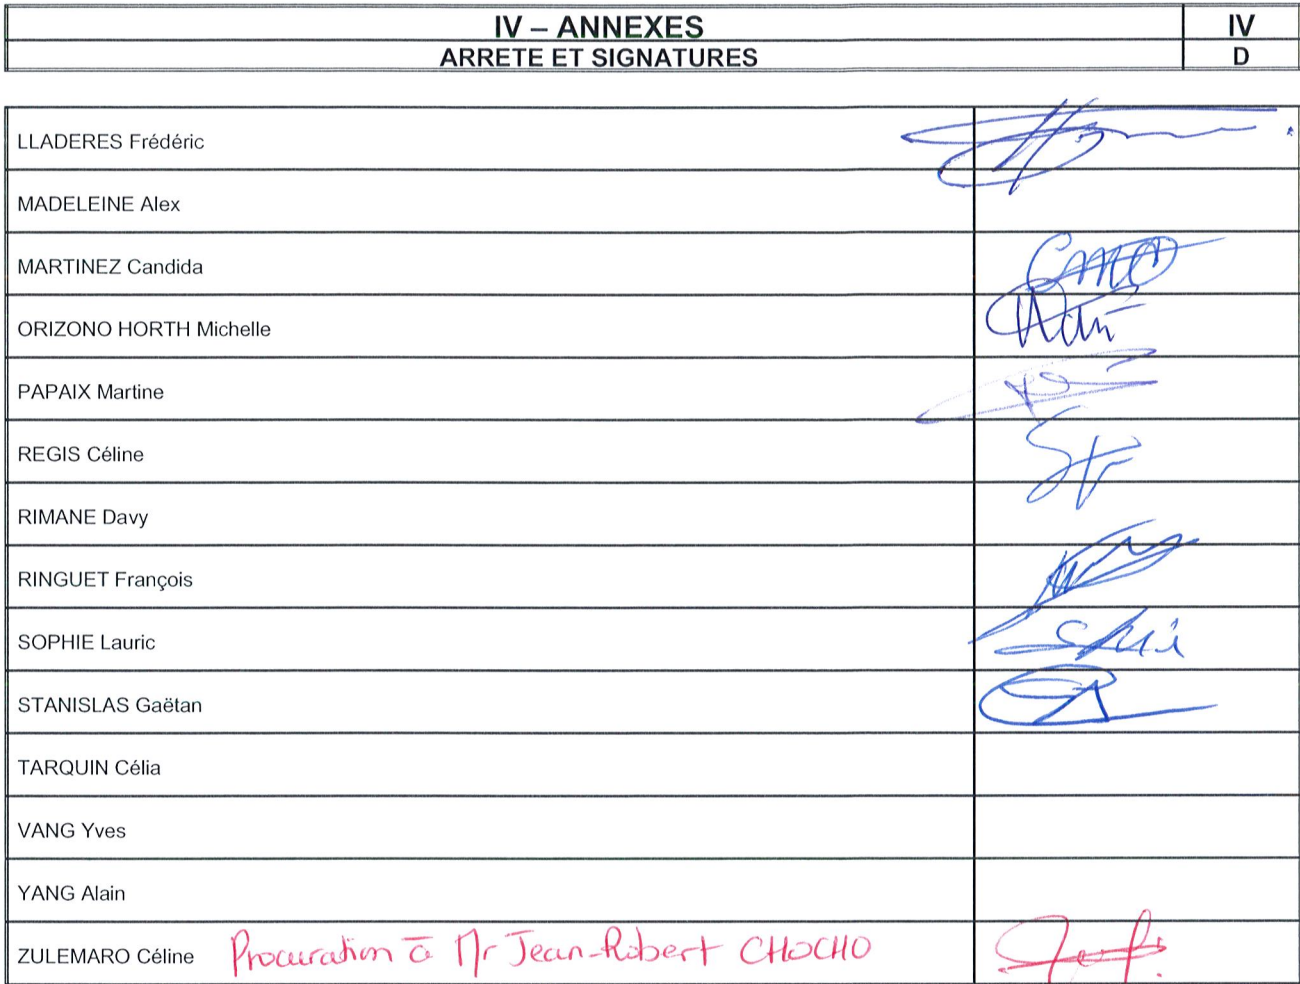 IV – ANNEXES
IV
ARRETE ET SIGNATURES
D
LLADERES Frédéric
MADELEINE Alex
MARTINEZ Candida
ORIZONO HORTH Michelle
PAPAIX Martine
REGIS Céline
RIMANE Davy
RINGUET François
SOPHIE Lauric
STANISLAS Gaëtan
TARQUIN Célia
VANG Yves
YANG Alain
ZULEMARO Céline Procuration à Mr Jean-Robert CHOCHO